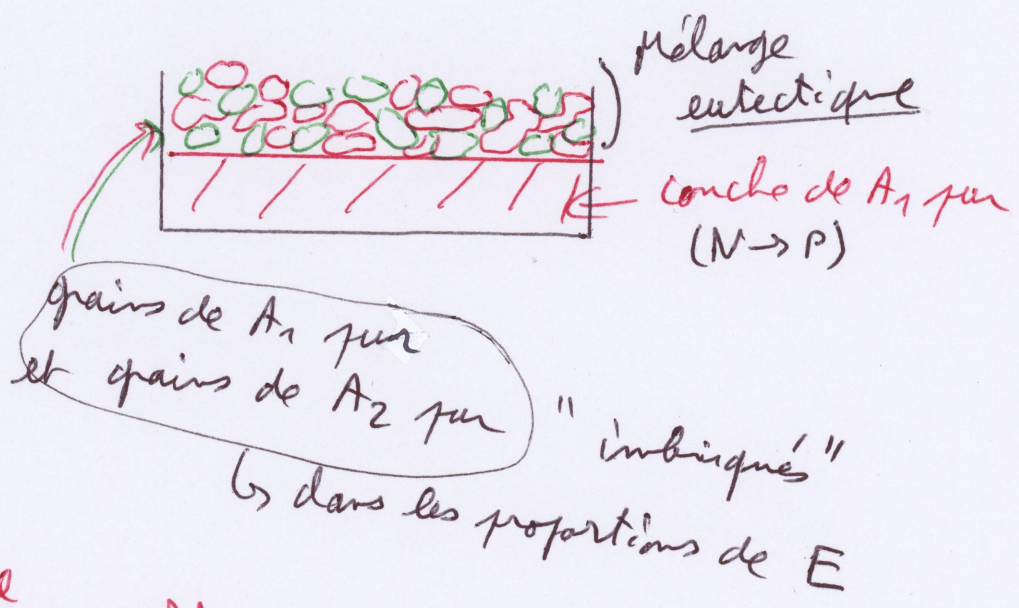 Mélange
eutectique
couche de A1 pur
(N → P)
grains de A1 pur
et grains de A2 pur
"imbriqués"
↳ dans les proportions de E